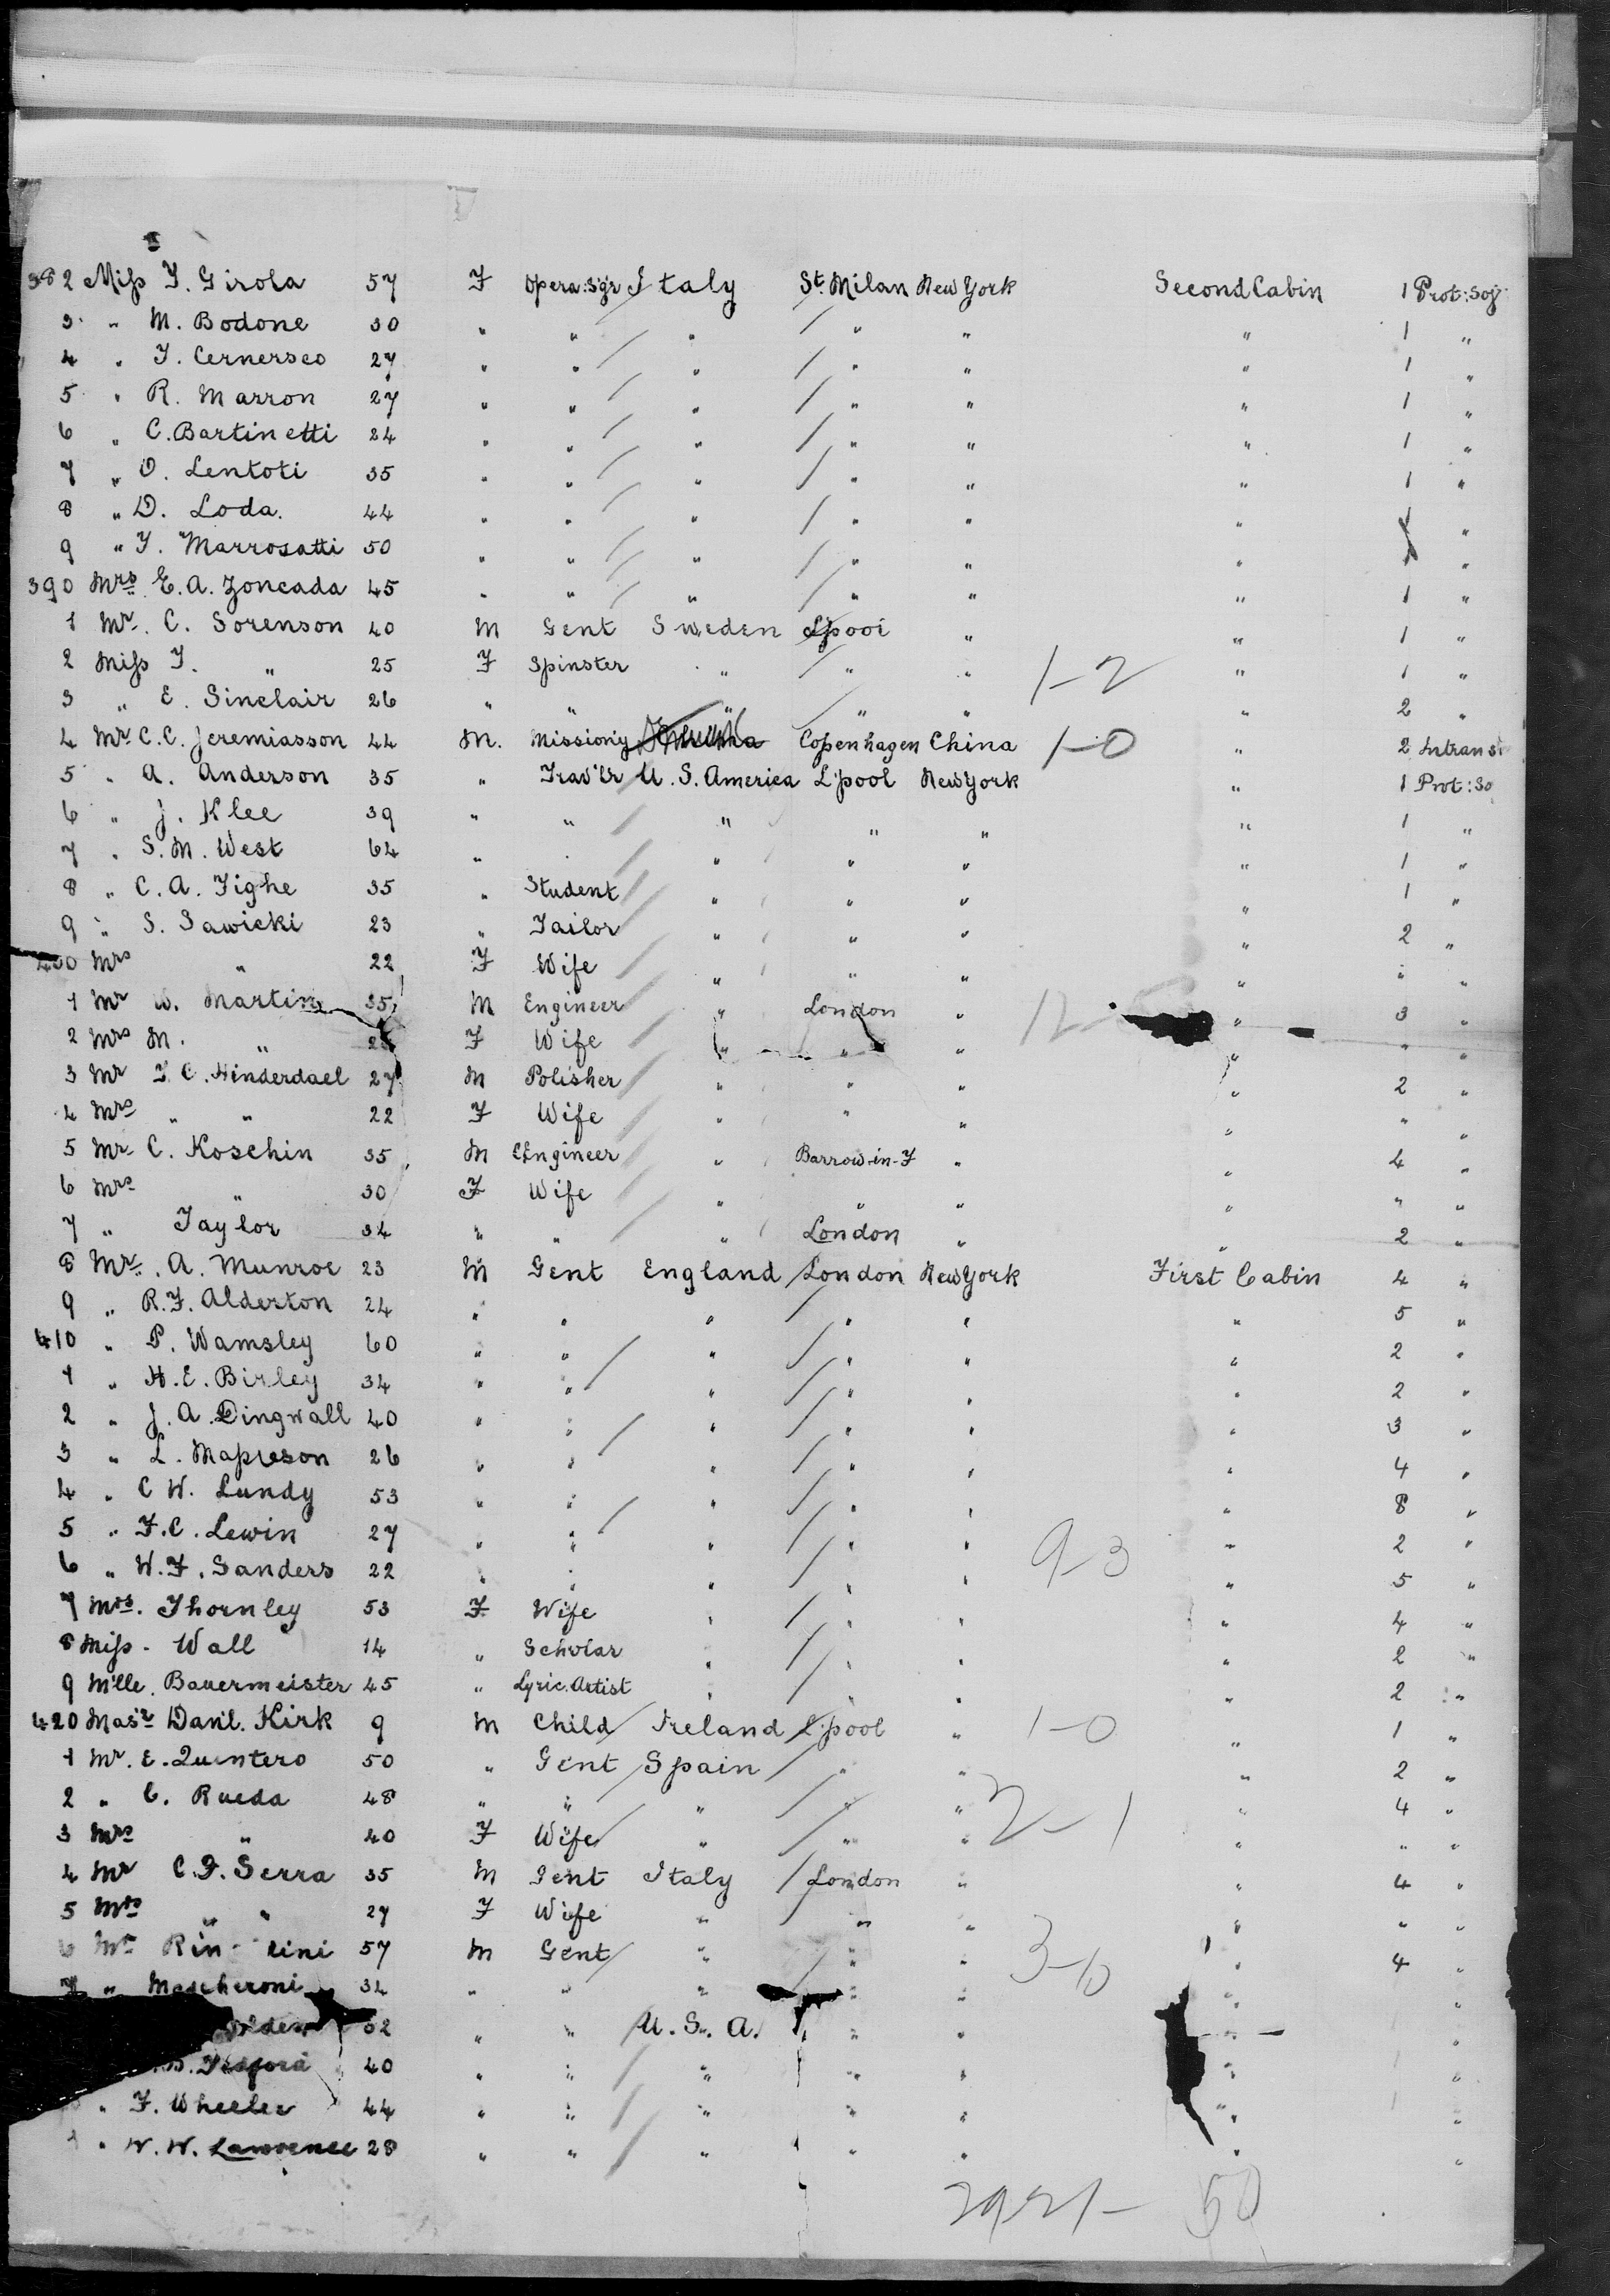 382 Miss I. Girola 57 F Opera: Sgr Italy St. Milan New York Second Cabin 1 Prot: Soj
3 " M. Bodone 30 " " " " " " 1 "
4 " I. Cernerseo 27 " " " " " " 1 "
5 " R. Marron 27 " " " " " " 1 "
6 " C. Bartinetti 24 " " " " " " 1 "
7 " O. Lentoti 35 " " " " " " 1 "
8 " D. Loda. 44 " " " " " " "
9 " I. Marrosatti 50 " " " " " " "
390 Mrs. E. A. Zoncada 45 " " " " " " 1 "
1 Mr. C. Sorenson 40 M Gent Sweden L'pool " " 1 "
2 Miss I. " 25 F Spinster " " " 1-2 " 1 "
3 " E. Sinclair 26 " " " " " " 2 "
4 Mr C. C. Jeremiasson 44 M. Mission'y Copenhagen China 1-0 " 2 Intransi
5 " A. Anderson 35 " Trav'lr U. S. America L'pool New York " 1 Prot: So
6 " J. Klee 39 " " " " " " 1 "
7 " S. M. West 64 " " " " " " 1 "
8 " C. A. Tighe 35 " Student " " " " 1 "
9 " S. Sawicki 23 " Tailor " " " " 2 "
400 Mrs " 22 F Wife " " " " " "
1 Mr W. Martin 35 M Engineer " London " 12- " 3 "
2 Mrs M. " F Wife " " " " " "
3 Mr I. C. Hinderdael 27 M Polisher " " " " 2 "
4 Mrs " " 22 F Wife " " " " " "
5 Mr C. Koschin 35 M Engineer " Barrow-in-F " " 4 "
6 Mrs " 30 F Wife " " " " " "
7 " Taylor 34 " " " London " " 2 "
8 Mr. A. Munroe 23 M Gent England London New York First Cabin 4 "
9 " R. F. Alderton 24 " " " " " " 5 "
410 " P. Wamsley 60 " " " " " " 2 "
1 " H. E. Birley 34 " " " " " " 2 "
2 " J. A. Dingwall 40 " " " " " " 3 "
3 " L. Mapleson 26 " " " " " " 4 "
4 " C W. Lundy 53 " " " " " " 8 "
5 " F. C. Lewin 27 " " " " " 9-3 " 2 "
6 " W. F. Sanders 22 " " " " " " 5 "
7 Mrs. Thornley 53 F Wife " " " " 4 "
8 Miss. Wall 14 " Scholar " " " " 2 "
9 M'lle. Bauermeister 45 " Lyric. Artist " " " " 2 "
420 Mas'r Dan'l. Kirk 9 M Child Ireland L'pool " 1-0 " 1 "
1 Mr. E. Quintero 50 " Gent Spain " " " 2 "
2 " C. Rueda 48 " " " " " 2-1 " 4 "
3 Mrs " 40 F Wife " " " " " "
4 Mr C. F. Serra 35 M Gent Italy London " " 4 "
5 Mrs " " 27 F Wife " " " " " "
6 Mr 57 M Gent " " " " 4 "
7 " Mascheroni 34 " " " " " " "
62 " " U. S. A. " " " "
40 " " " " " " 1 "
" F. Wheeler 44 " " " " " " 1 "
" W. W. Lawrence 28 " " " " " " "
29 21- 50